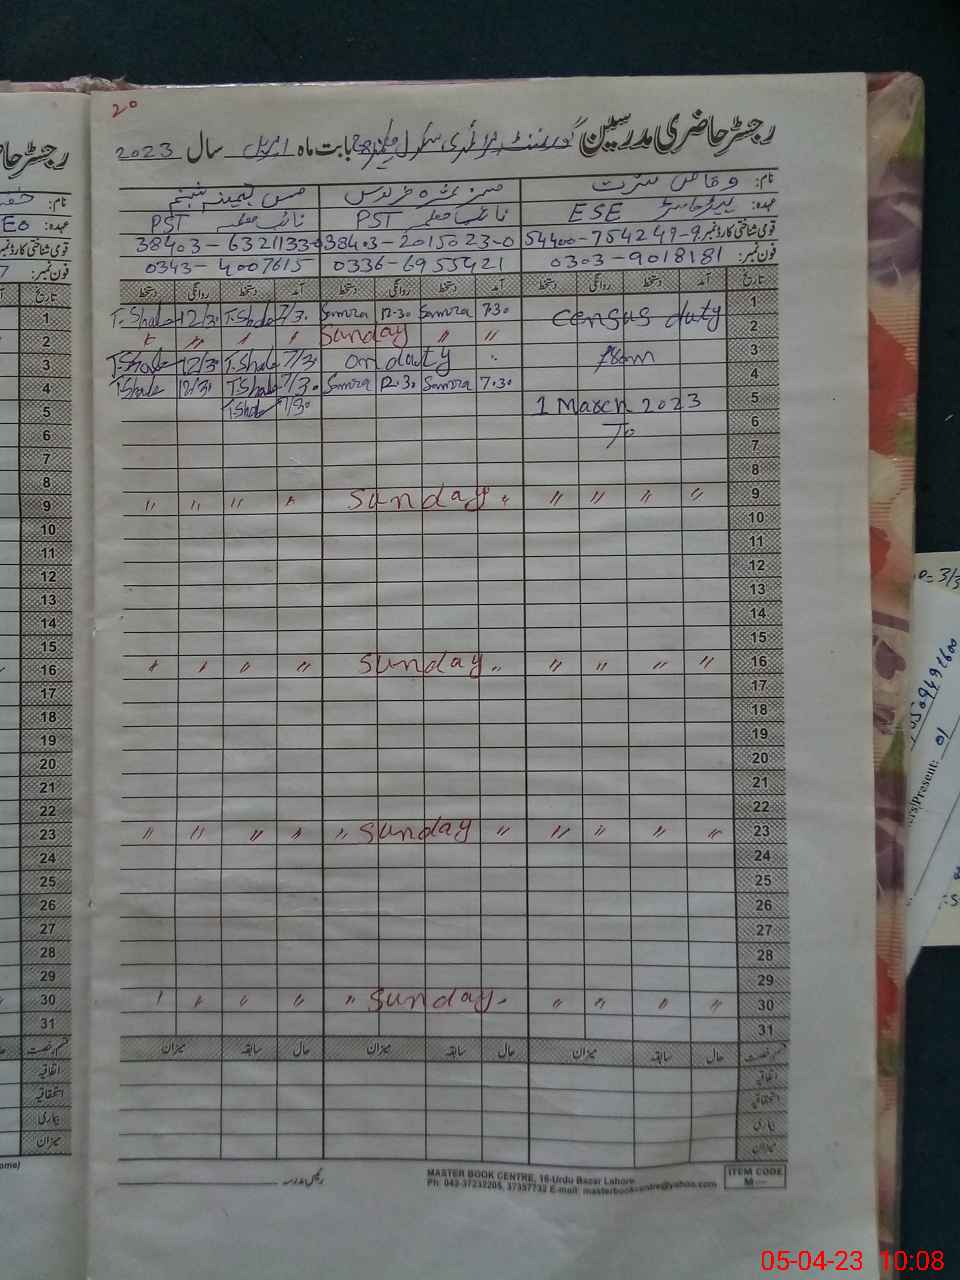 20
رجسٹر حاضری مدرسین گورنمنٹ پرائمری سکول بابت ماہ اپریل سال 2023
نام: وقاص حسرت مس ثمینہ شبنم
عہدہ: ہیڈ ماسٹر ESE نائب معلمہ PST نائب معلمہ PST
قومی شناختی کارڈ نمبر: 54400-754249-9 38403-2015023-0 38403-6321133-0
فون نمبر: 0303-9018181 0336-6955421 0343-4007615
تاریخ آمد دستخط روانگی دستخط آمد دستخط روانگی دستخط آمد دستخط روانگی دستخط
1 census duty 7.30 Samra 12.30 Samra 7/30 T.Shale 12/30 T.Shale
2 " " Sunday " " " "
3 from on duty 7/30 T.Shale 12/30 T.Shale
4 7.30 Samra 12.30 Samra 7/30 T.Shale 12/30 T.Shale
5 1 March 2023 7/30 T.Shale
6 To
7
8
9 " " " " " Sunday " " " "
10
11
12
13
14
15
16 " " " " " Sunday " " " "
17
18
19
20
21
22
23 " " " " " Sunday " " " " "
24
25
26
27
28
29
30 " " " " " Sunday " " " " "
31
قسم رخصت حال سابقہ میزان حال سابقہ میزان حال سابقہ میزان
اتفاقیہ
استحقاقیہ
بیماری
میزان
رئیس مدرسہ
MASTER BOOK CENTRE, 16-Urdu Bazar Lahore
Ph: 042-37232205, 37357732 E-mail: masterbookcentre@yahoo.com
ITEM CODE
M
Present: 01
05-04-23 10:08